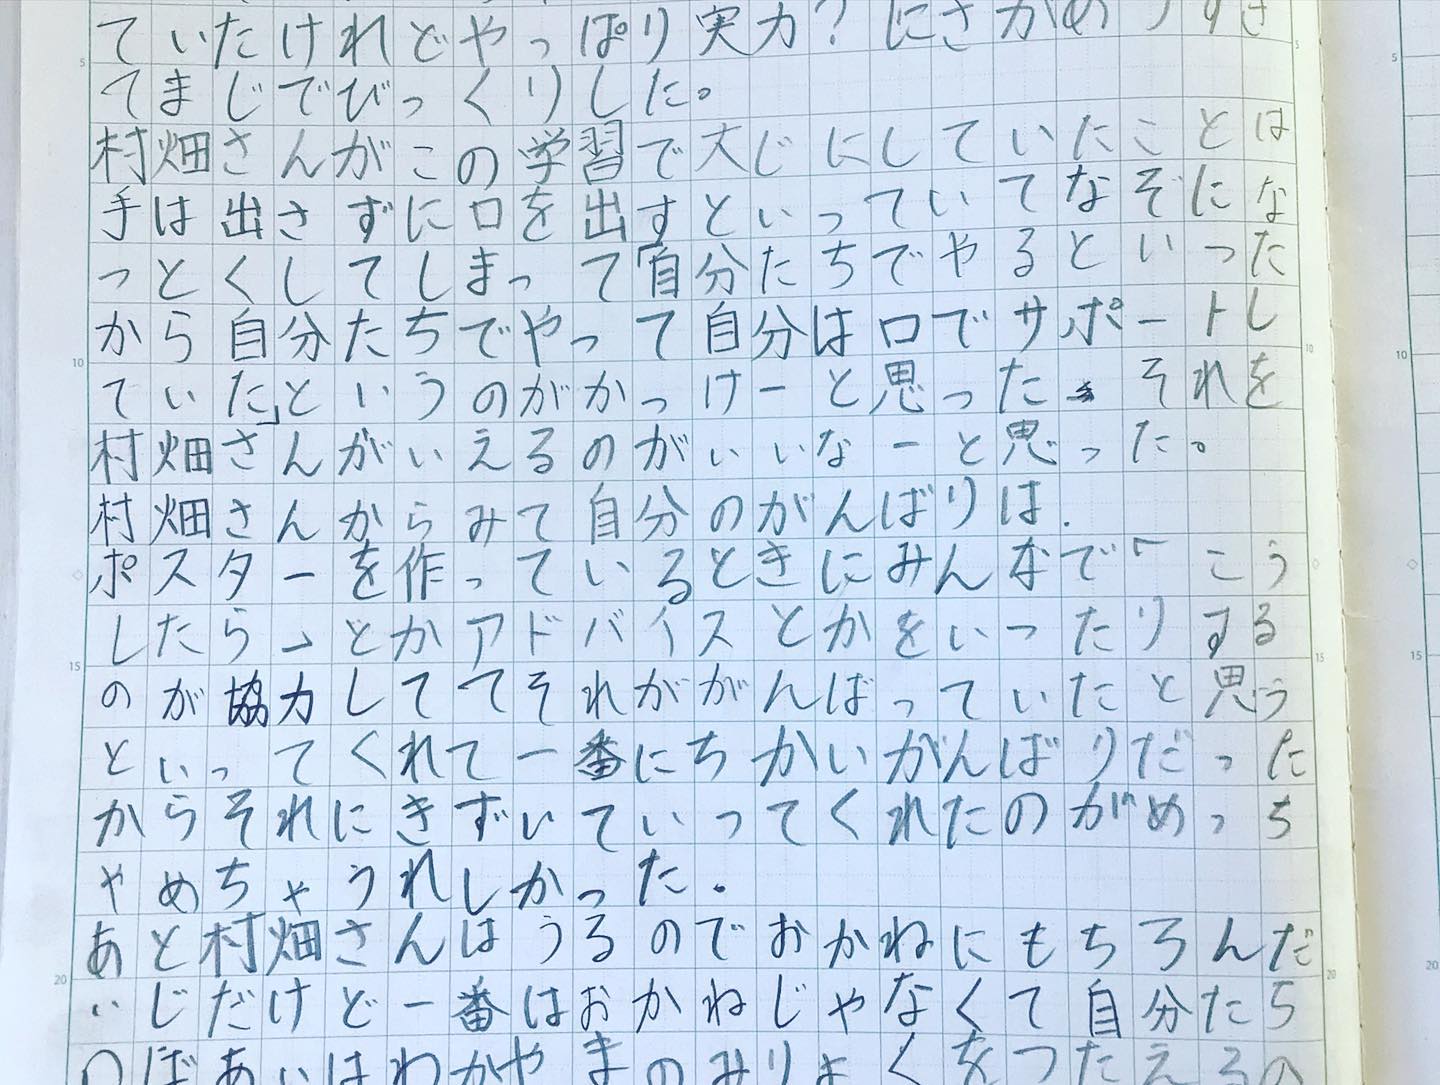 ていたけれどやっぱり実力?にさがありすぎ
てまじでびっくりした。
村畑さんがこの学習で大じにしていたことは
手は出さずに口を出すといっていてなぞにな
っとくしてしまって「自分たちでやるといった
から自分たちでやって自分は口でサポートし
ていた」というのがかっけーと思った。それを
村畑さんがいえるのがいいなーと思った。
村畑さんからみて自分のがんばりは.
ポスターを作っているときにみんなで「こう
したら」とかアドバイスとかをいったりする
のが協力しててそれががんばっていたと思う
といってくれて一番にちかいがんばりだった
からそれにきずいていってくれたのがめっち
ゃめちゃうれしかった.
あと村畑さんはうるのでおかねにもちろんだ
いじだけど一番はおかねじゃなくて自分たち
のばあいはわかやまのみりょくをつたえるの